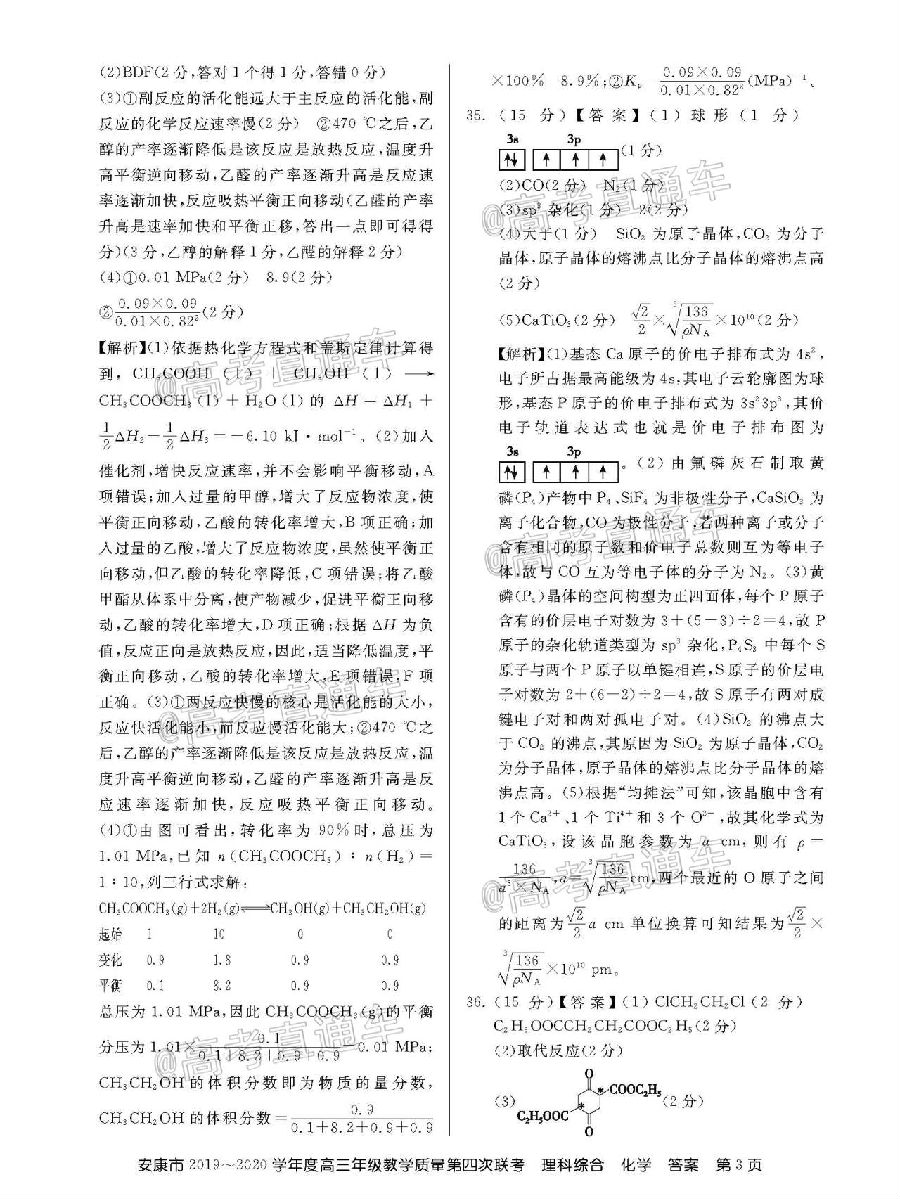 (2)BDF(2分,答对1个得1分,答错0分)
(3)①副反应的活化能远大于主反应的活化能,副
反应的化学反应速率慢(2分) ②470 ℃之后,乙
醇的产率逐渐降低是该反应是放热反应,温度升
高平衡逆向移动,乙醛的产率逐渐升高是反应速
率逐渐加快,反应吸热平衡正向移动(乙醛的产率
升高是速率加快和平衡正移,答出一点即可得得
分)(3分,乙醇的解释1分,乙醛的解释2分)
(4)①0.01 MPa(2分) 8.9(2分)
②0.09×0.09/0.01×0.82²(2分)
【解析】(1)依据热化学方程式和盖斯定律计算得
到, CH₃COOH (l) CH₃OH (l) ⟶
CH₃COOCH₃(l)+H₂O(l)的 ΔH=ΔH₁+
1/2ΔH₂−1/2ΔH₃=−6.10 kJ·mol⁻¹。(2)加入
催化剂,增快反应速率,并不会影响平衡移动,A
项错误;加入过量的甲醇,增大了反应物浓度,使
平衡正向移动,乙酸的转化率增大,B项正确;加
入过量的乙酸,增大了反应物浓度,虽然使平衡正
向移动,但乙酸的转化率降低,C项错误;将乙酸
甲酯从体系中分离,使产物减少,促进平衡正向移
动,乙酸的转化率增大,D项正确;根据 ΔH 为负
值,反应正向是放热反应,因此,适当降低温度,平
衡正向移动,乙酸的转化率增大,E项错误;F项
正确。(3)①两反应快慢的核心是活化能的大小,
反应快活化能小,而反应慢活化能大;②470℃之
后,乙醇的产率逐渐降低是该反应是放热反应,温
度升高平衡逆向移动,乙醛的产率逐渐升高是反
应速率逐渐加快,反应吸热平衡正向移动。
(4)①由图可看出,转化率为90%时,总压为
1.01 MPa,已知 n(CH₃COOCH₃)∶n(H₂)=
1∶10,列三行式求解:
CH₃COOCH₃(g)+2H₂(g)⇌CH₃OH(g)+CH₃CH₂OH(g)
起始 1 10 0 0
变化 0.9 1.8 0.9 0.9
平衡 0.1 8.2 0.9 0.9
总压为1.01 MPa,因此 CH₃COOCH₃(g)的平衡
分压为1.01×0.1/0.1+8.2+0.9+0.9 0.01 MPa;
CH₃CH₂OH的体积分数即为物质的量分数,
CH₃CH₂OH的体积分数=0.9/0.1+8.2+0.9+0.9
×100% 8.9%;②Kₚ 0.09×0.09/0.01×0.82²(MPa)⁻¹。
35.(15分)【答案】(1)球形(1分)
3s 3p
↑↓ ↑ ↑ ↑ (1分)
(2)CO(2分) N₂(1分)
(3)sp³杂化(1分) 2(2分)
(4)大于(1分) SiO₂ 为原子晶体,CO₂ 为分子
晶体,原子晶体的熔沸点比分子晶体的熔沸点高
(2分)
(5)CaTiO₃(2分) √2/2×∛(136/ρNA)×10¹⁰(2分)
【解析】(1)基态 Ca 原子的价电子排布式为 4s²,
电子所占据最高能级为 4s,其电子云轮廓图为球
形,基态 P 原子的价电子排布式为 3s²3p³,其价
电子轨道表达式也就是价电子排布图为
3s 3p
↑↓ ↑ ↑ ↑ 。(2)由氟磷灰石制取黄
磷(P₄)产物中 P₄、SiF₄ 为非极性分子,CaSiO₃ 为
离子化合物,CO为极性分子,若两种离子或分子
含有相同的原子数和价电子总数则互为等电子
体,故与CO互为等电子体的分子为 N₂。(3)黄
磷(P₄)晶体的空间构型为正四面体,每个 P 原子
含有的价层电子对数为 3+(5−3)÷2=4,故 P
原子的杂化轨道类型为 sp³ 杂化,P₄S₃ 中每个 S
原子与两个 P 原子以单键相连,S 原子的价层电
子对数为 2+(6−2)÷2=4,故 S 原子有两对成
键电子对和两对孤电子对。(4)SiO₂ 的沸点大
于 CO₂ 的沸点,其原因为 SiO₂ 为原子晶体,CO₂
为分子晶体,原子晶体的熔沸点比分子晶体的熔
沸点高。(5)根据“均摊法”可知,该晶胞中含有
1个 Ca²⁺、1个 Ti⁴⁺ 和3个 O²⁻,故其化学式为
CaTiO₃,设该晶胞参数为 a cm,则有 ρ=
136/a³×NA,a=∛(136/ρNA) cm,两个最近的 O 原子之间
的距离为√2/2 a cm 单位换算可知结果为√2/2×
∛(136/ρNA)×10¹⁰ pm。
36.(15分)【答案】(1)ClCH₂CH₂Cl(2分)
C₂H₅OOCCH₂CH₂COOC₂H₅(2分)
(2)取代反应(2分)
(3) O * COOC₂H₅ C₂H₅OOC * O (2分)
安康市2019～2020学年度高三年级教学质量第四次联考 理科综合 化学 答案 第3页
@高考直通车
@高考直通车
@高考直通车
@高考直通车
@高考直通车
@高考直通车
@高考直通车